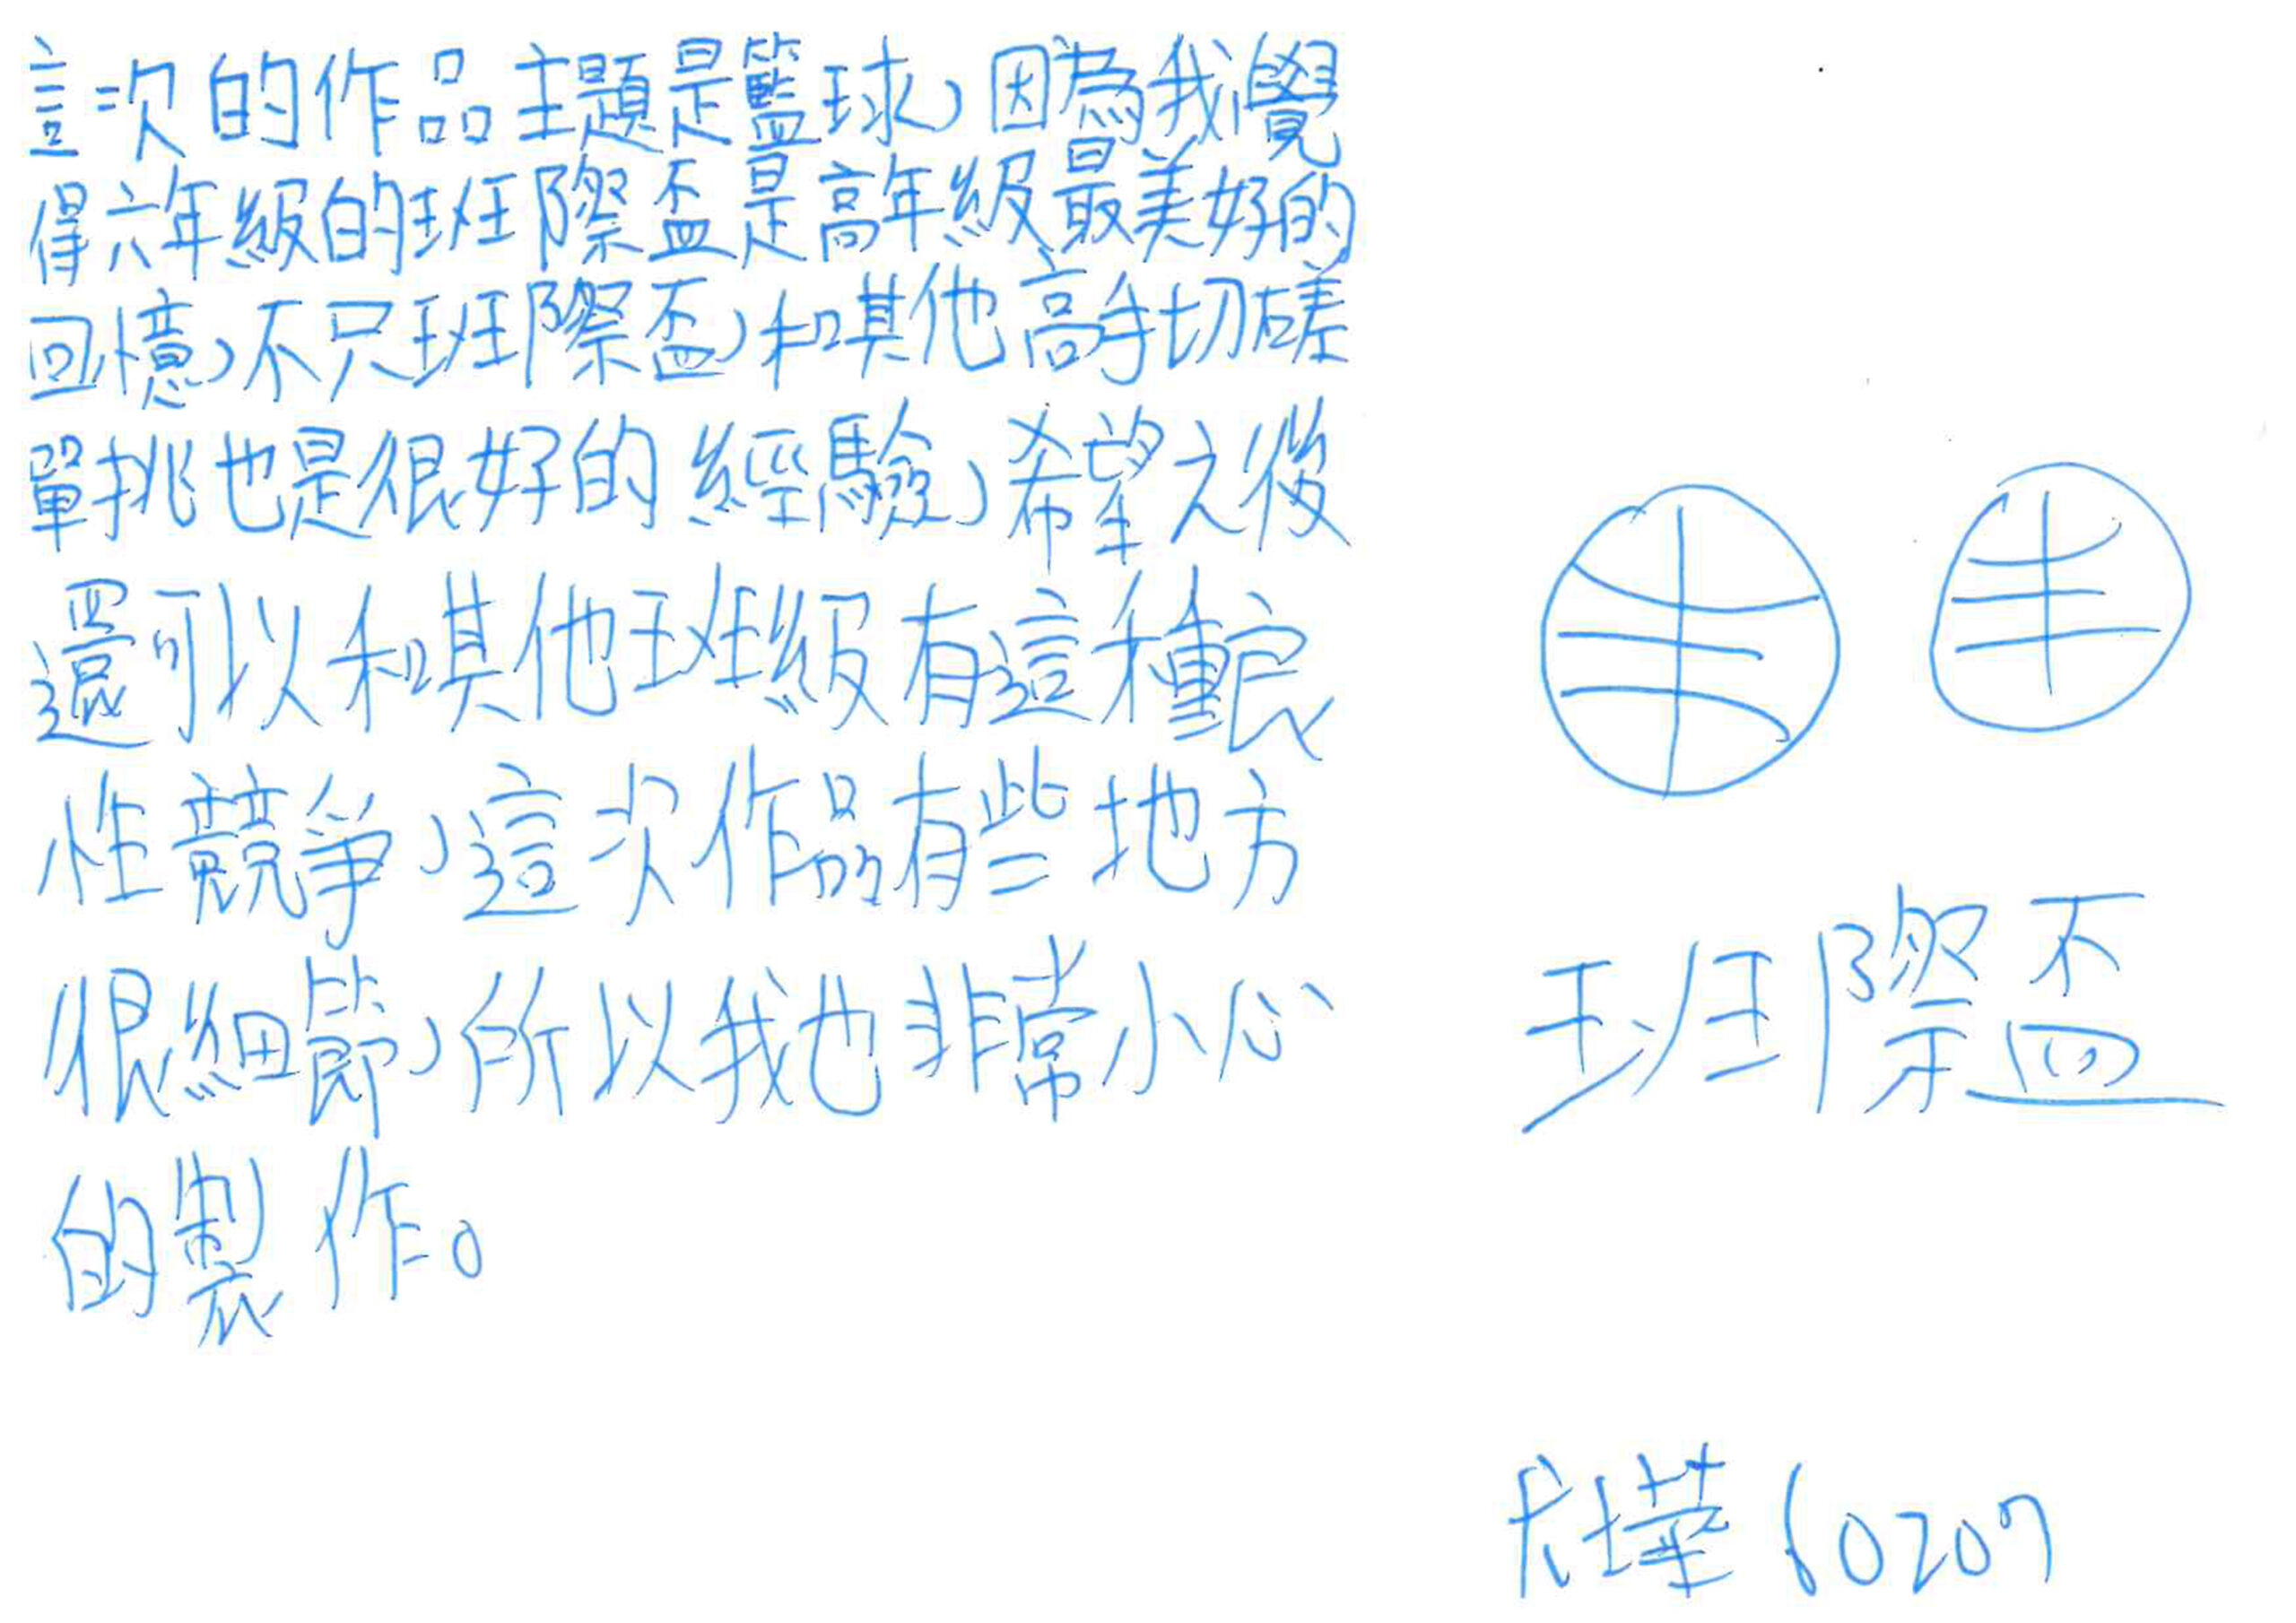 這次的作品主題是籃球，因為我覺
得六年級的班際盃是高年級最美好的
回憶，不只班際盃，和其他高手切磋
單挑也是很好的經驗，希望之後
還可以和其他班級有這種良
性競爭，這次作品有些地方
很細節，所以我也非常小心
的製作。
班際盃
60207